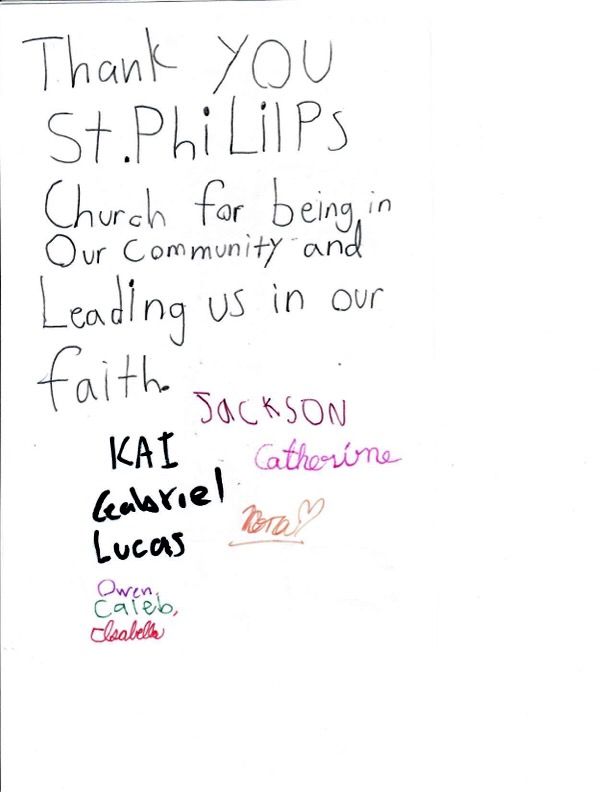 Thank YOU
St. PhiLilPs
Church for being in
Our Community and
Leading us in our
faith.
JACKSON
KAI
Catherine
Gabriel
Nora♡
Lucas
Owen,
Caleb,
Isabella